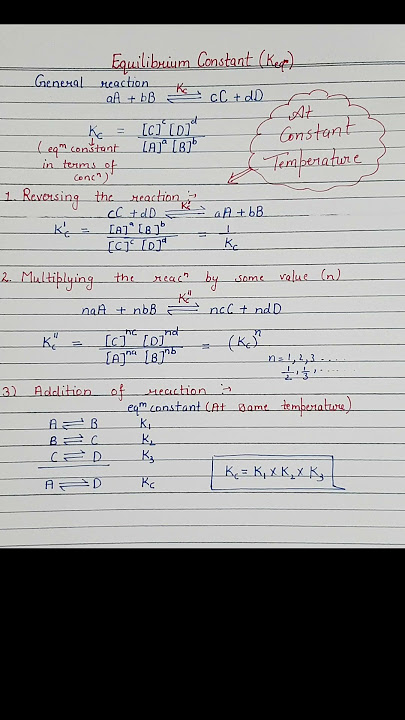 Equilibrium Constant (Keqᵐ)
General reaction
aA + bB ⇌ cC + dD
Kc
Kc = [C]ᶜ [D]ᵈ / [A]ᵃ [B]ᵇ
(eqᵐ constant
in terms of
concⁿ)
At
Constant
Temperature
1. Reversing the reaction :-
cC + dD ⇌ aA + bB
Kc'
Kc' = [A]ᵃ [B]ᵇ / [C]ᶜ [D]ᵈ = 1 / Kc
2. Multiplying the reacⁿ by some value (n)
naA + nbB ⇌ ncC + ndD
Kc"
Kc" = [C]ⁿᶜ [D]ⁿᵈ / [A]ⁿᵃ [B]ⁿᵇ = (Kc)ⁿ
n = 1, 2, 3 .....
1/2, 1/3, ....
3) Addition of reaction :-
eqᵐ constant (At same temperature)
A ⇌ B K₁
B ⇌ C K₂
C ⇌ D K₃
A ⇌ D Kc
Kc = K₁ × K₂ × K₃